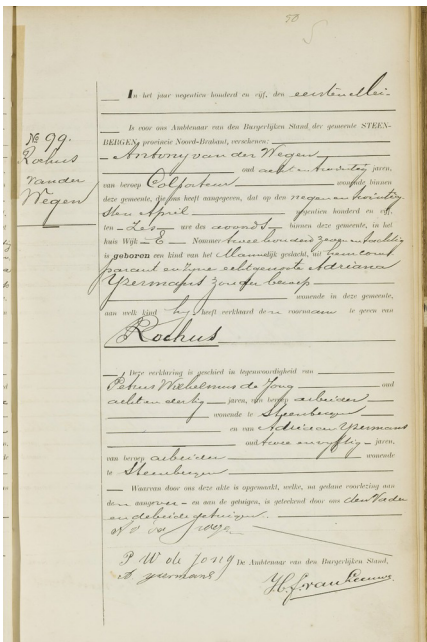 50
In het jaar negentien honderd en vijf, den eersten Mei
Is voor ons Ambtenaar van den Burgerlijken Stand der gemeente STEEN-
BERGEN, provincie Noord-Brabant, verschenen:
Nº 99.
Rochus
van der
Wegen
Antony van der Wegen
oud acht en twintig jaren,
van beroep Colporteur wonende binnen
deze gemeente, die ons heeft aangegeven, dat op den negen en twintig
sten April negentien honderd en vijf,
ten zes ure des avonds binnen deze gemeente, in het
huis Wijk E Nummer twee honderd zeven en tachtig
is geboren een kind van het Mannelijk geslacht, uit hem com
parant en zijne echtgenoote Adriana
IJzermans zonder beroep
wonende in deze gemeente,
aan welk kind hij heeft verklaard den voornaam te geven van
Rochus
Deze verklaring is geschied in tegenwoordigheid van
Petrus Wilhelmus de Jong oud
acht en dertig jaren, van beroep arbeider
wonende te Steenbergen
en van Adriaan IJzermans
oud twee en vijftig jaren,
van beroep arbeider wonende
te Steenbergen
Waarvan door ons deze akte is opgemaakt, welke, na gedane voorlezing aan
den aangever en aan de getuigen, is geteekend door ons den Vader
en de beide getuigen.
P W de Jong
De Ambtenaar van den Burgerlijken Stand,
A ijzermans